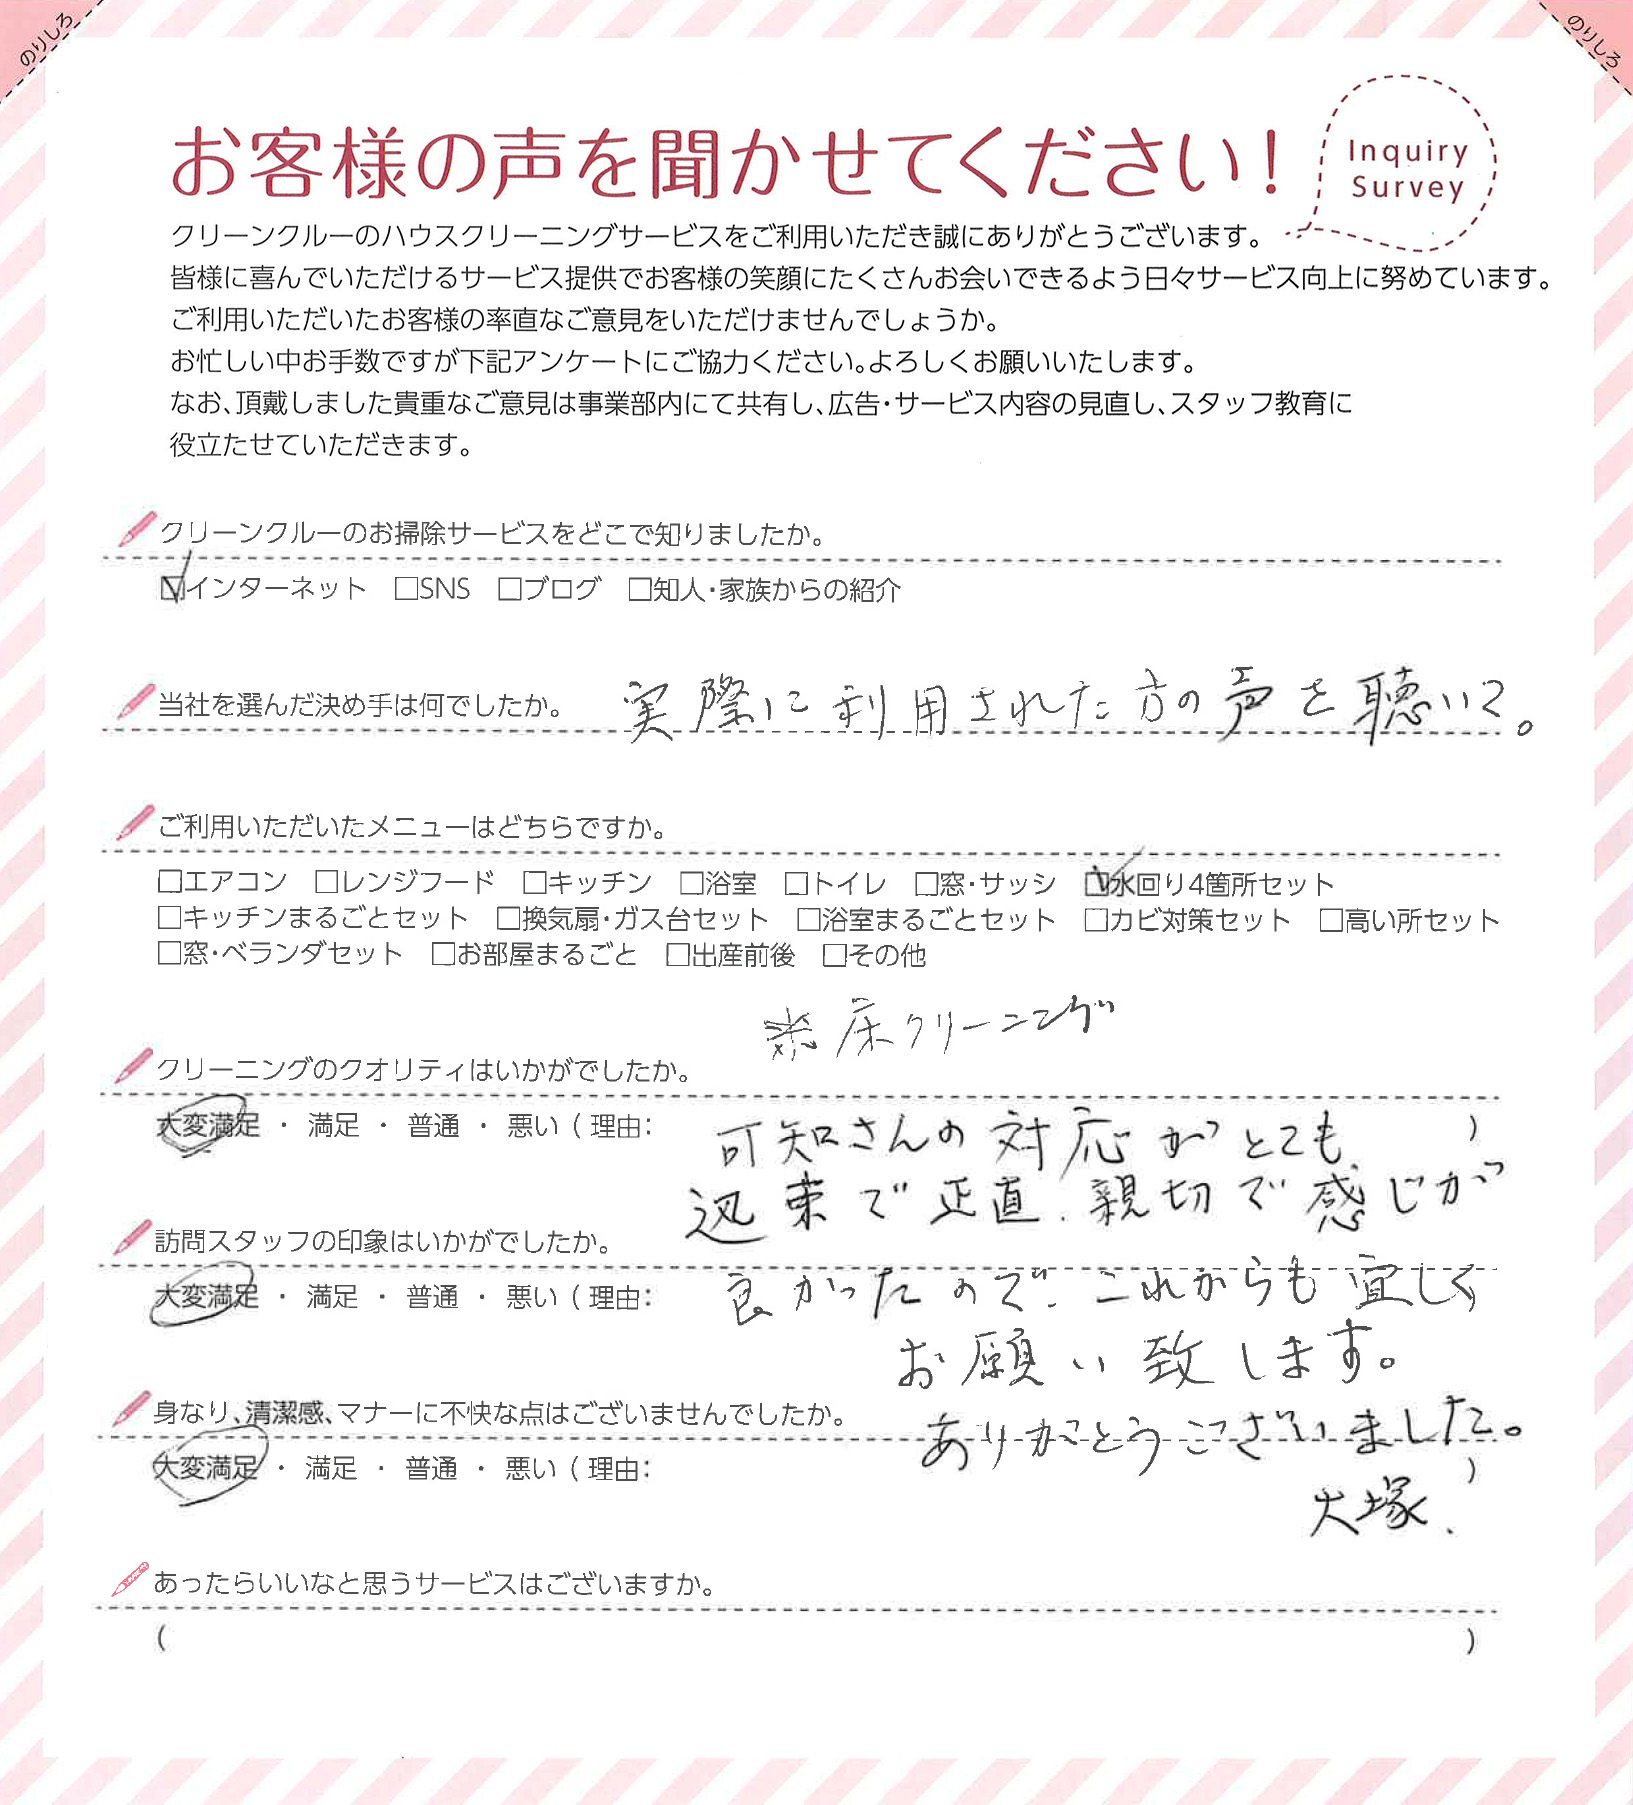 のりしろ
のりしろ
お客様の声を聞かせてください！
Inquiry
Survey
クリーンクルーのハウスクリーニングサービスをご利用いただき誠にありがとうございます。
皆様に喜んでいただけるサービス提供でお客様の笑顔にたくさんお会いできるよう日々サービス向上に努めています。
ご利用いただいたお客様の率直なご意見をいただけませんでしょうか。
お忙しい中お手数ですが下記アンケートにご協力ください。よろしくお願いいたします。
なお、頂戴しました貴重なご意見は事業部内にて共有し、広告・サービス内容の見直し、スタッフ教育に
役立たせていただきます。
クリーンクルーのお掃除サービスをどこで知りましたか。
☑インターネット □SNS □ブログ □知人・家族からの紹介
当社を選んだ決め手は何でしたか。 実際に利用された方の声を聴いて。
ご利用いただいたメニューはどちらですか。
□エアコン □レンジフード □キッチン □浴室 □トイレ □窓・サッシ ☑水回り4箇所セット
□キッチンまるごとセット □換気扇・ガス台セット □浴室まるごとセット □カビ対策セット □高い所セット
□窓・ベランダセット □お部屋まるごと □出産前後 □その他
※床クリーニング
クリーニングのクオリティはいかがでしたか。
大変満足 ・ 満足 ・ 普通 ・ 悪い ( 理由: 可知さんの対応がとても )
迅束で正直、親切で感じが
訪問スタッフの印象はいかがでしたか。
大変満足 ・ 満足 ・ 普通 ・ 悪い ( 理由: 良かったので、これからも宜しく )
お願い致します。
身なり、清潔感、マナーに不快な点はございませんでしたか。 ありがとうございました。
大変満足 ・ 満足 ・ 普通 ・ 悪い ( 理由: )
大塚.
あったらいいなと思うサービスはございますか。
( )